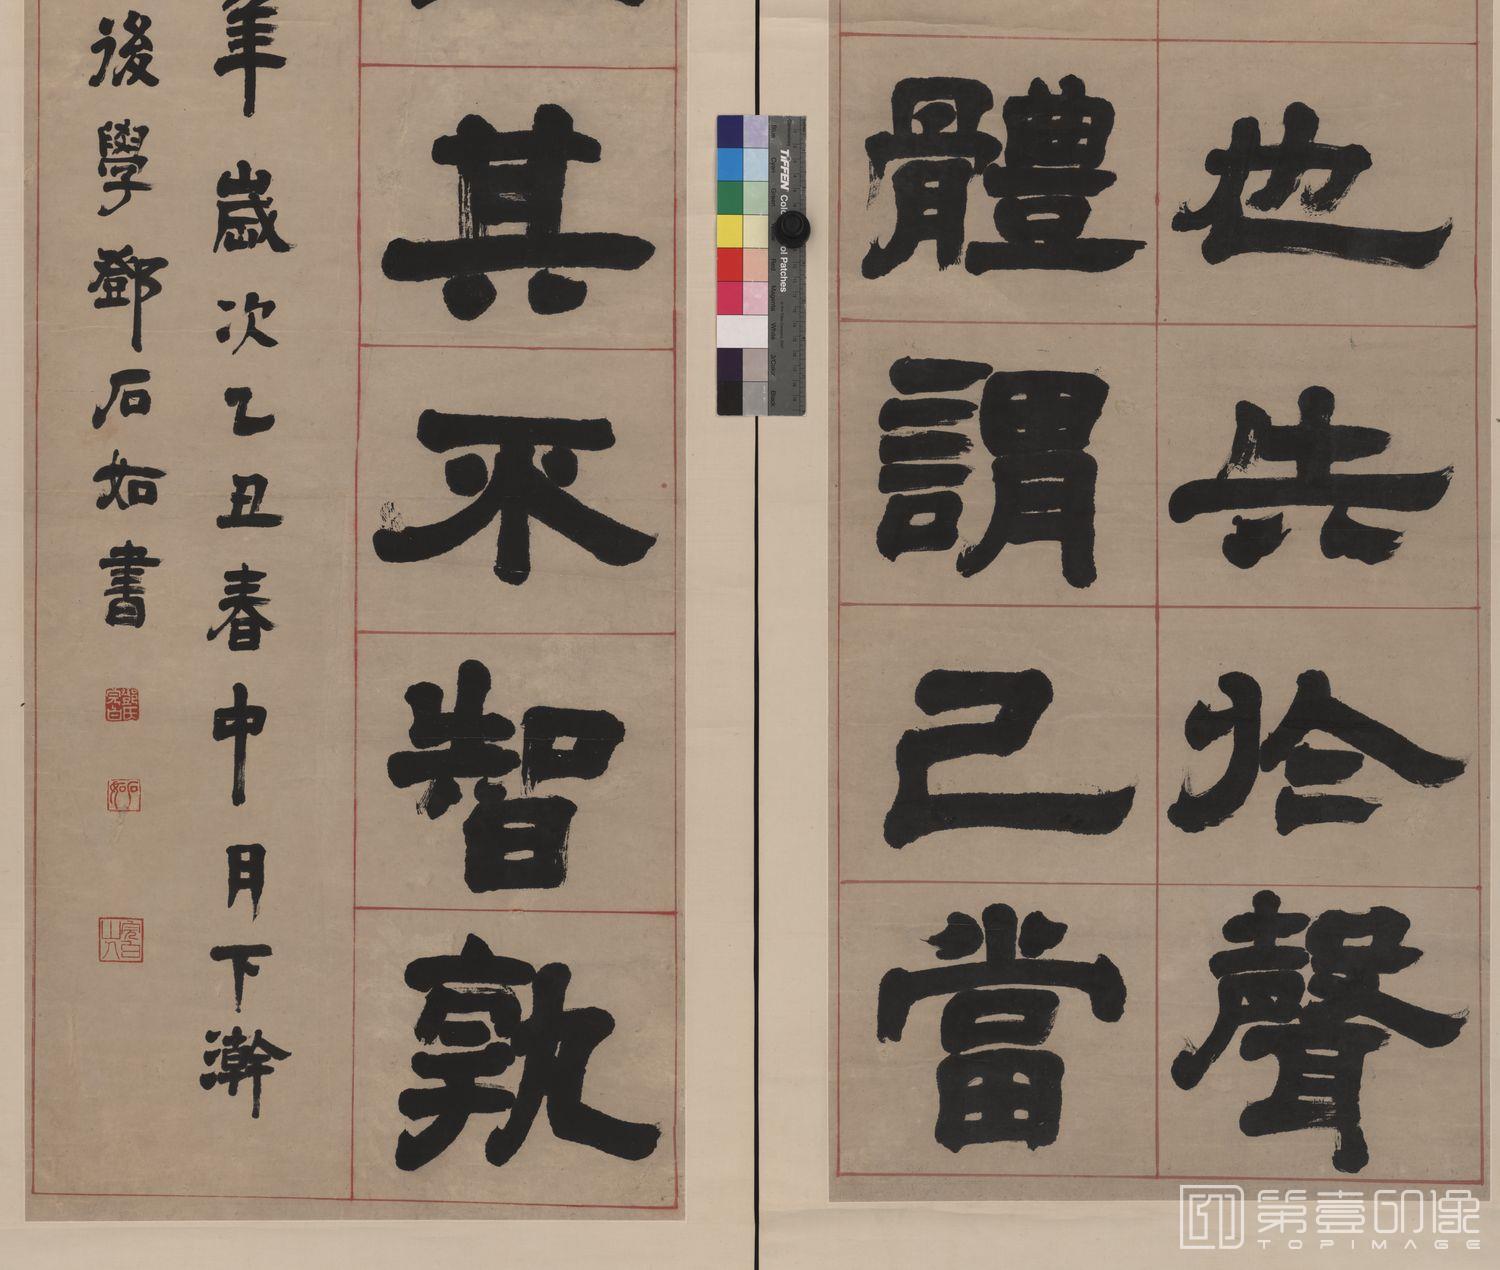 也失於聲
體謂己當
其不智孰
年歲次乙丑春中月下澣
後學鄧石如書
鄧氏完白
石如
完白山人
TIFFEN Color Control Patches
Blue Cyan Green Yellow Red Magenta White 3/Color Black
第壹印像
TOPIMAGE